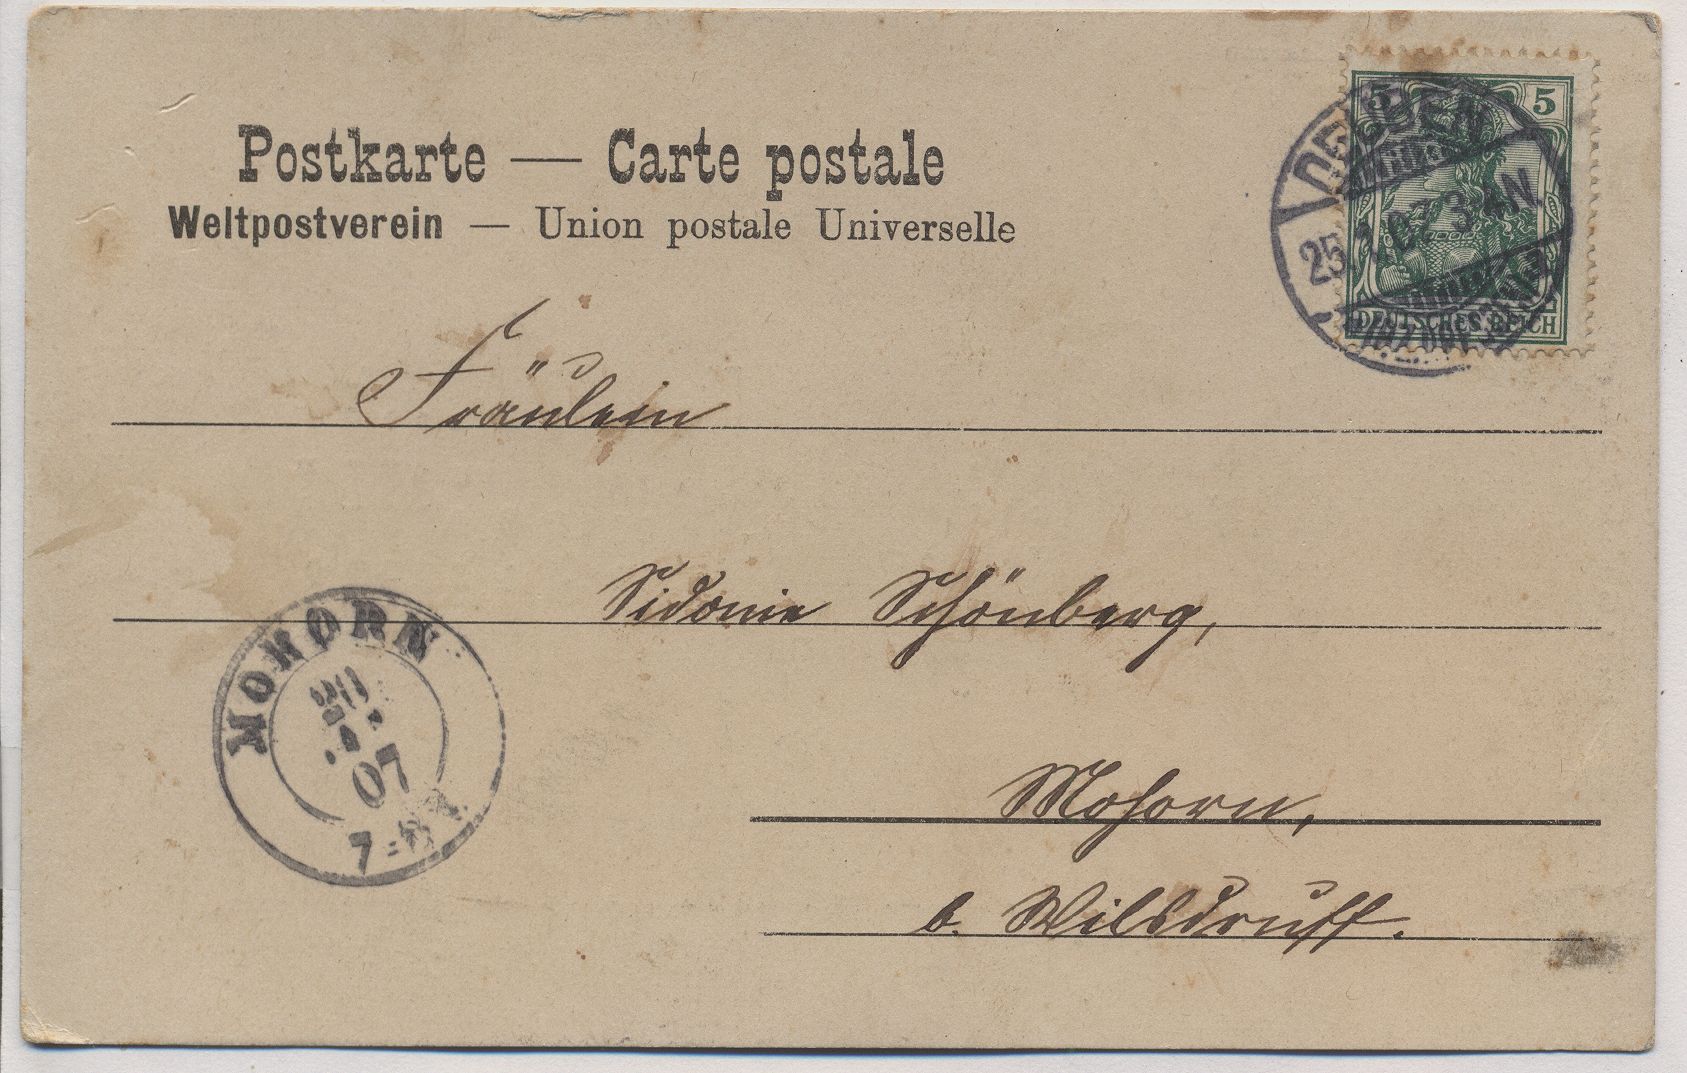 Postkarte — Carte postale
Weltpostverein — Union postale Universelle
5 5
DEUTSCHES REICH
DEUBEN
25. 07. 3-4N
Fräulein
Sidonie Schönberg,
Mohorn,
b. Wilsdruff.
MOHORN
07
7-8